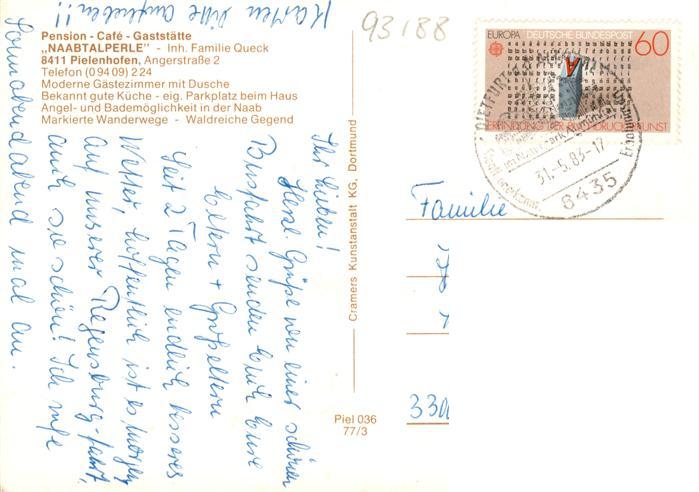 Karten bitte aufheben!!
93188
Pension - Café - Gaststätte
„NAABTALPERLE" - Inh. Familie Queck
8411 Pielenhofen, Angerstraße 2
Telefon (0 94 09) 2 24
Moderne Gästezimmer mit Dusche
Bekannt gute Küche - eig. Parkplatz beim Haus
Angel- und Bademöglichkeit in der Naab
Markierte Wanderwege - Waldreiche Gegend
Ihr Lieben!
Herzl. Grüße von einer schönen
Busfahrt senden Euch Eure
Eltern + Großeltern
Seit 2 Tagen endlich besseres
Wetter, hoffentlich ist es morgen
auf unserer Regensburg-fahrt
auch so schön! Ich rufe
Sonnabendabend mal an.
Cramers Kunstanstalt KG, Dortmund
Piel 036
77/3
EUROPA DEUTSCHE BUNDESPOST 60
ERFINDUNG DER BUCHDRUCKKUNST
DIETFURT
im Naturpark Altmühltal
Erholung
31.-5.83-17
8435
Familie
330